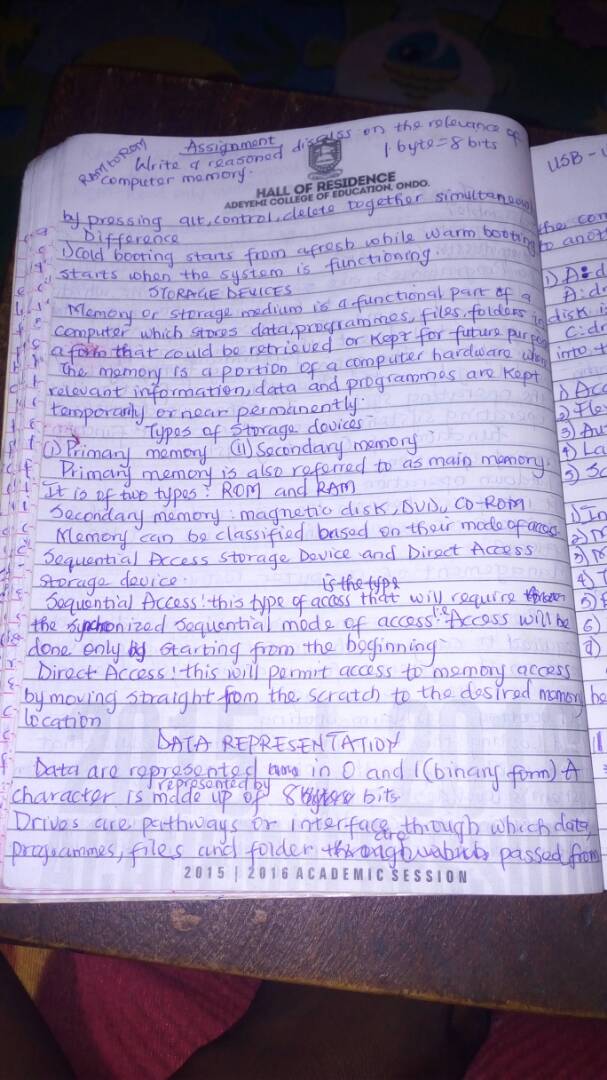 Assignment
RAM to ROM
Write a reasoned discuss on the relevance of
computer memory.
1 byte = 8 bits
HALL OF RESIDENCE
ADEYEMI COLLEGE OF EDUCATION, ONDO.
by pressing alt, control, delete together simultaneou
Difference
1) Cold booting starts from afresh while warm booting
starts when the system is functioning.
STORAGE DEVICES
Memory or storage medium is a functional part of a
computer which stores data, programmes, files, folders in
a form that could be retrieved or kept for future purpo
The memory is a portion of a computer hardware where
relevant information, data and programmes are kept
temporarily or near permanently.
Types of Storage devices
(i) Primary memory (ii) Secondary memory
Primary memory is also referred to as main memory.
It is of two types: ROM and RAM
Secondary memory: magnetic disk, DVD, CD-ROM
Memory can be classified based on their mode of access
Sequential Access Storage Device and Direct Access
Storage device.
is the type
Sequential Access: this type of access that will require
the synchronized sequential mode of access i.e Access will be
done only by starting from the beginning
Direct Access: this will permit access to memory access
by moving straight from the scratch to the desired memory
location
DATA REPRESENTATION
Data are represented in 0 and 1 (binary form) A
represented by
character is made up of 8 bits
Drives are pathways or interface through which data,
are
programmes, files and folder through which passed from
2015 | 2016 ACADEMIC SESSION
USB -
her com
to anot
1) A: d
A: dr
disk i
C: dr
into t
1) Acc
2) Fle
3) Au
4) La
5) Sc
1) In
2) M
3) M
4) T
5) F
6)
he